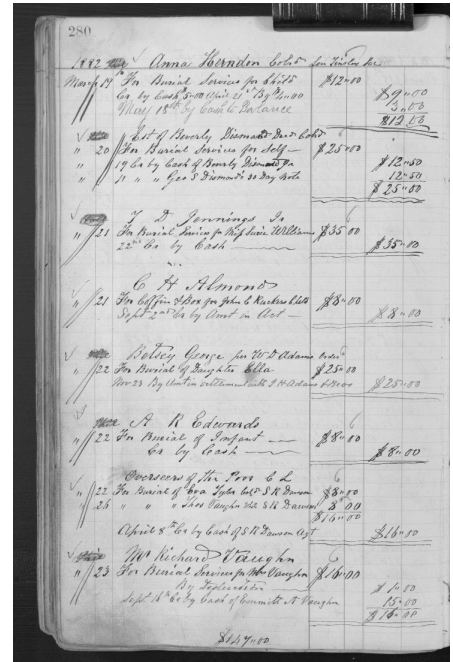 280
1882 Anna Herndon Cold
March 19 For Burial Services for Child $12"00
Cr by Cash $5.00 April 21st By $4.00 $9"00
May 18th by Cash to Balance 3.00
$12.00
Est of Beverly Dismond Decd Cold
" 20 For Burial Services for Self — $25"00
19 Cr by Cash of Beverly Dismond Jr $12"50
" " " Geo S Dismonds 30 Day Note 12"50
$25"00
T D Jennings Jr
" 21 For Burial Services for Williams $35 00
22nd Cr by Cash — $35"00
C H Almond
" 21 For Coffin & Box for John C Ruckers Child $8"00
Sept 2nd Cr by Amt in Act — $8"00
Betsey George per W D Adams order
" 22 For Burial of Daughter Ella $25"00
Nov 23 By Amt in settlement with Adams $25"00
A R Edwards
" 22 For Burial of Infant — $8"00
Cr by Cash — $8"00
Overseers of the Poor C L
" 22 For Burial of Eva Tyler Cold S R Dawson $8"00
" 26 " " " Thos Vaughn S R Dawson 8"00
$16"00
April 8th Cr by Cash of S R Dawson Agt $16"00
Mr Richard Vaughn
" 23 For Burial Services for Mrs Vaughn $16"00
By $1"00
Sept 16th Cr by Cash of Emmitt A Vaughn 15"00
$16"00
$147"00